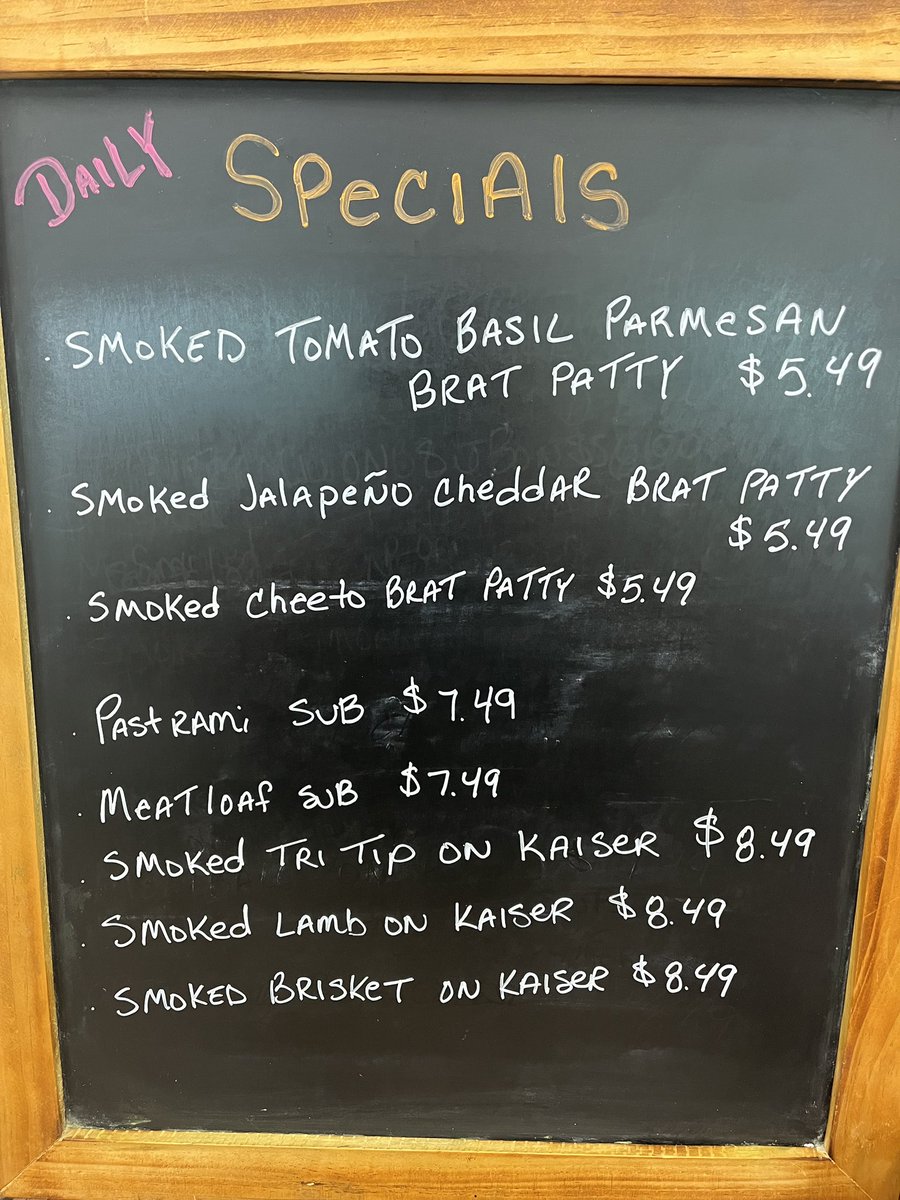 DAILY SPeciAls
. SMOKED TOMATO BASIL PARMeSAN
BRAT PATTY $5.49
. SMoked JAlApeÑo cheddAR BRAT PATTY
$5.49
. SMoked cheeto BRAT PATTY $5.49
. PAstRAMi SUB $7.49
. MeATloAf SUB $7.49
. SMoked TRi Tip ON KAISeR $8.49
. SMoked LAMb ON KAISeR $8.49
. SMOKED BRISKeT ON KAISeR $8.49